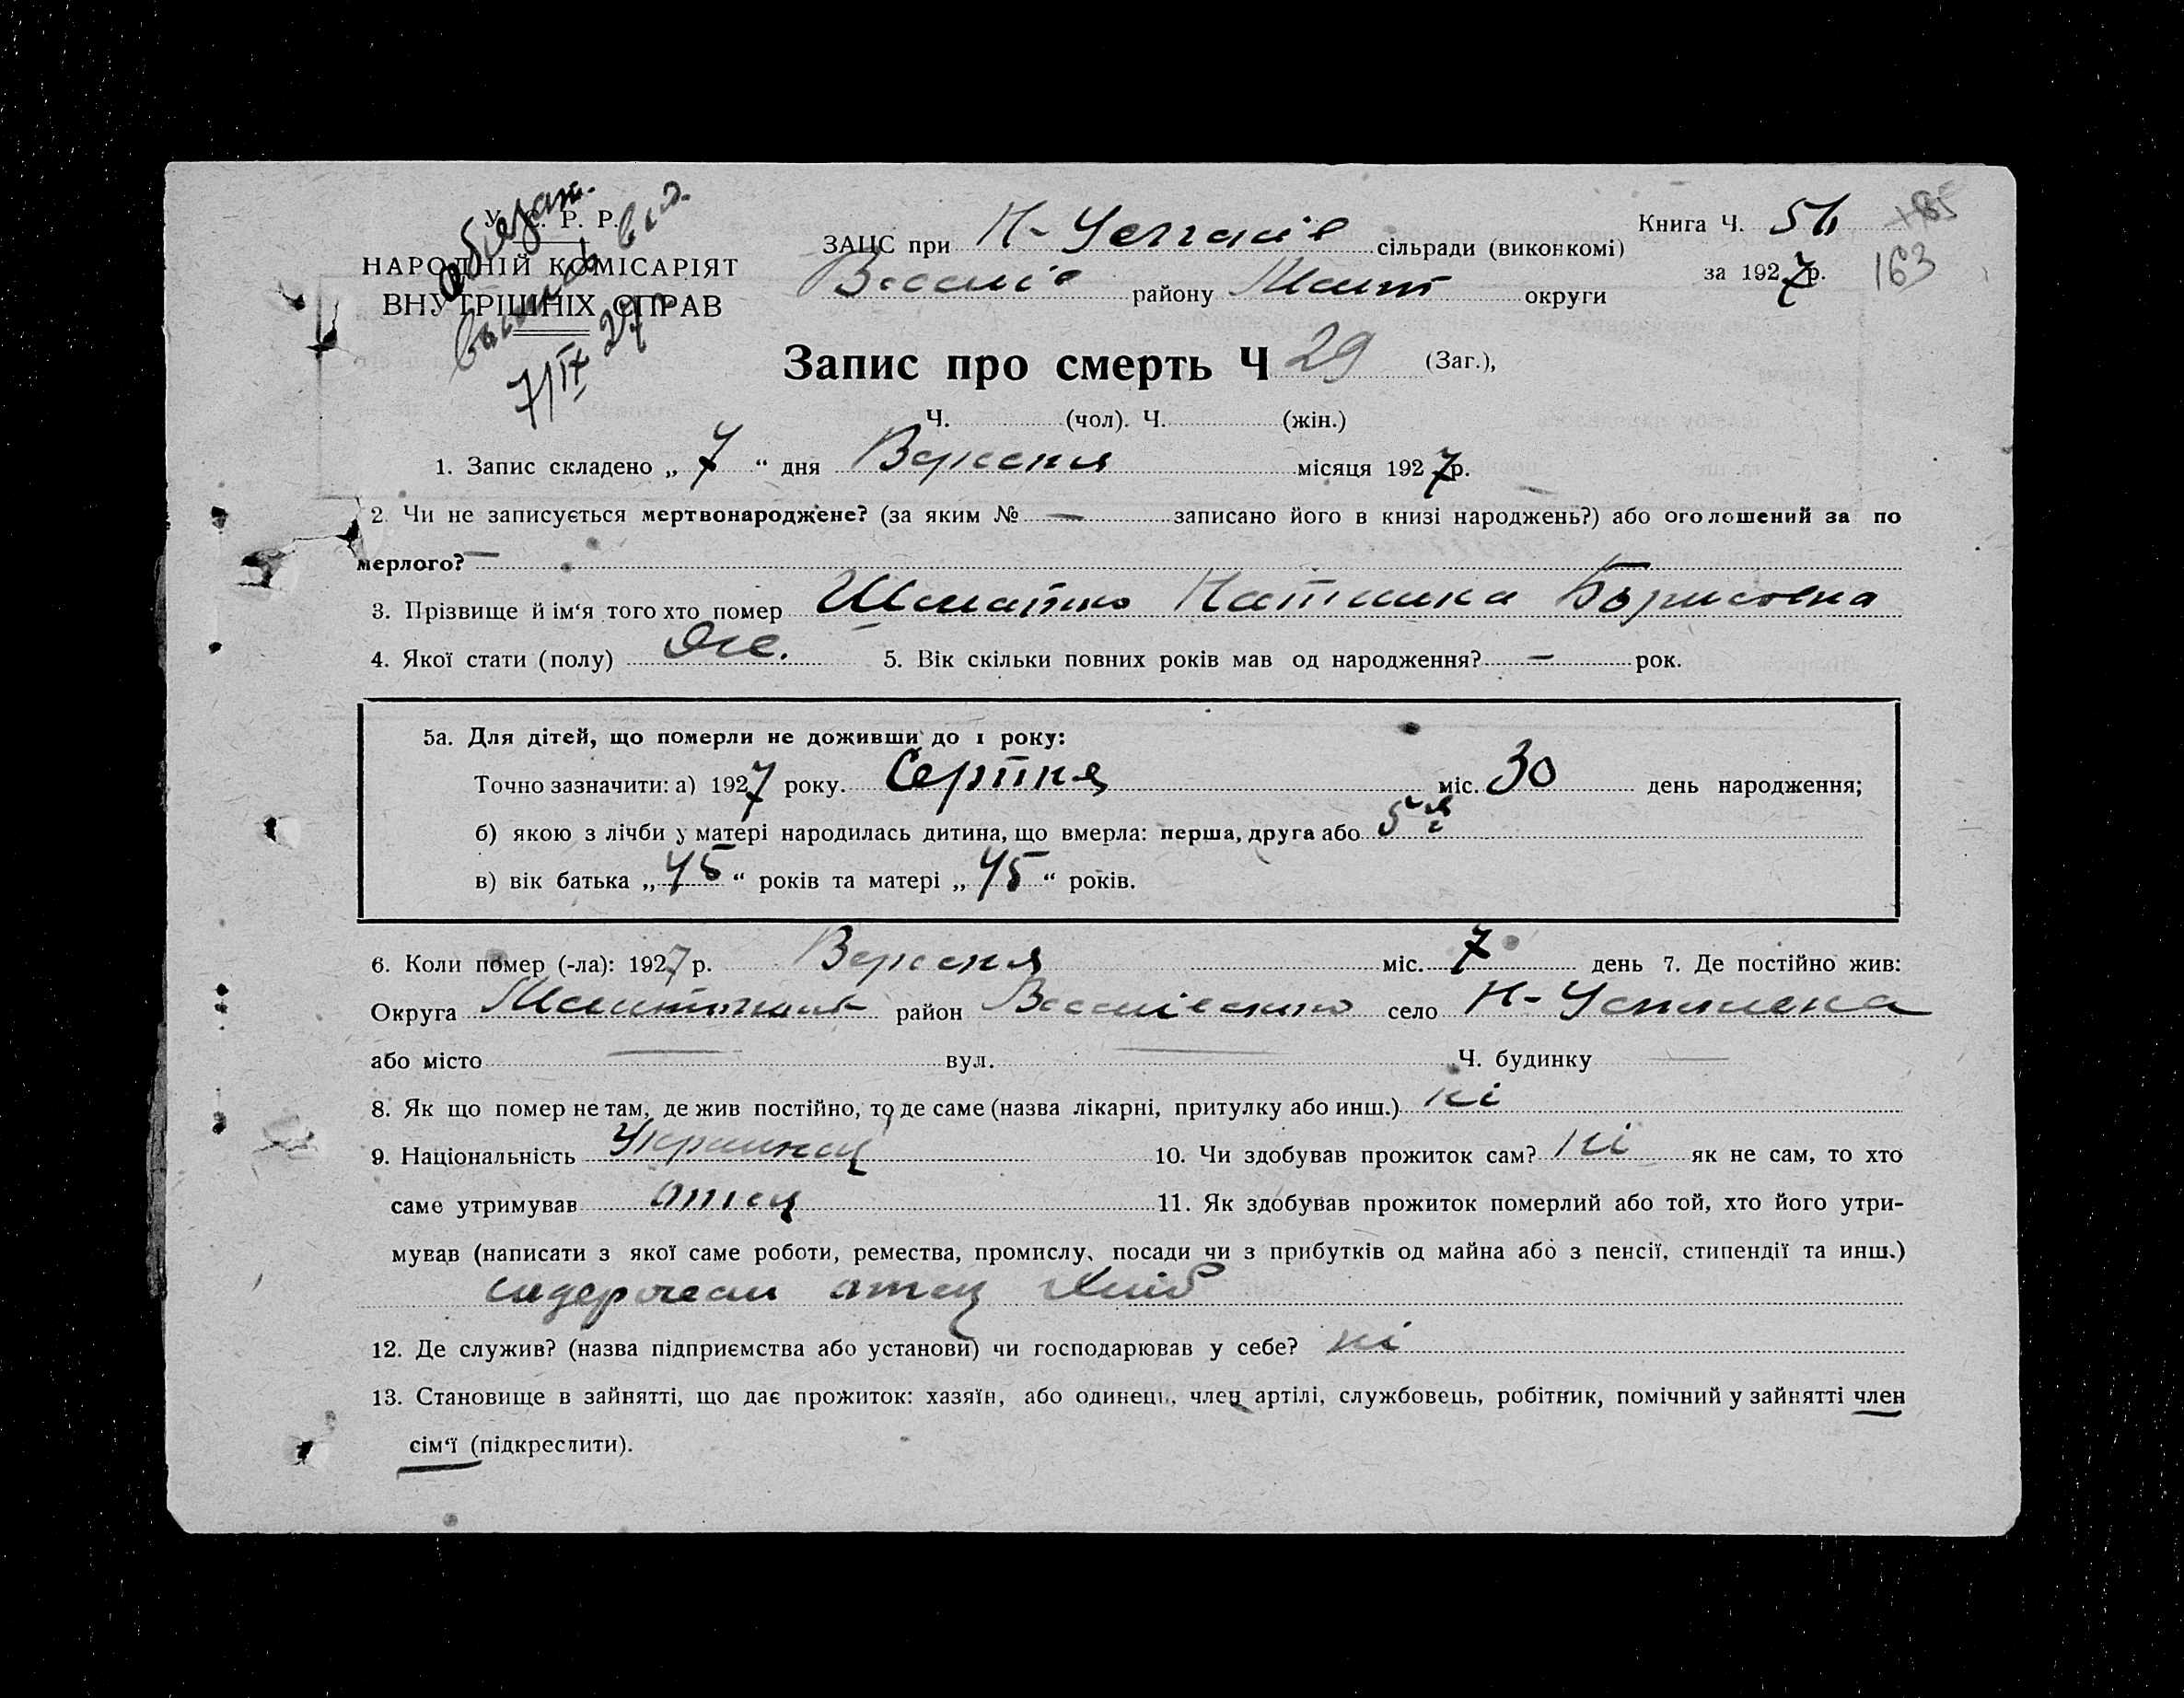 У. С. Р. Р.
НАРОДНІЙ КОМІСАРІЯТ
ВНУТРІШНІХ СПРАВ
7/IX 27
ЗАЦС при Н-Успенів сільради (виконкомі)
Веселів району Меліт округи
Книга Ч. 56
за 1927 р.
185
163
Запис про смерть Ч 29 (Заг.),
Ч. (чол). Ч. (жін.)
1. Запис складено „ 7 “ дня Вересня місяця 1927 р.
2. Чи не записується мертвонароджене? (за яким № — записано його в книзі народжень?) або оголошений за по
мерлого? —
3. Прізвище й ім‘я того хто помер Шематько Борисовна
4. Якої стати (полу) Же. 5. Вік скільки повних років мав од народження? — рок.
5а. Для дітей, що померли не доживши до 1 року:
Точно зазначити: а) 1927 року. Серпня міс. 30 день народження;
б) якою з лічби у матері народилась дитина, що вмерла: перша, друга або 5-я
в) вік батька „ 45 “ років та матері „ 45 “ років.
6. Коли помер (-ла): 1927 р. Вересня міс. 7 день 7. Де постійно жив:
Округа район Веселівського село Н-Успенівка
або місто — вул. — Ч. будинку —
8. Як що помер не там, де жив постійно, то де саме (назва лікарні, притулку або инш.) ні
9. Національність Украинец 10. Чи здобував прожиток сам? ні як не сам, то хто
саме утримував отец 11. Як здобував прожиток померлий або той, хто його утри-
мував (написати з якої саме роботи, ремества, промислу, посади чи з прибутків од майна або з пенсії, стипендії та инш.)
содержал отец хліб
12. Де служив? (назва підприємства або установи) чи господарював у себе? ні
13. Становище в зайнятті, що дає прожиток: хазяїн, або одинець, член артілі, службовець, робітник, помічний у зайнятті член
сім‘ї (підкреслити).